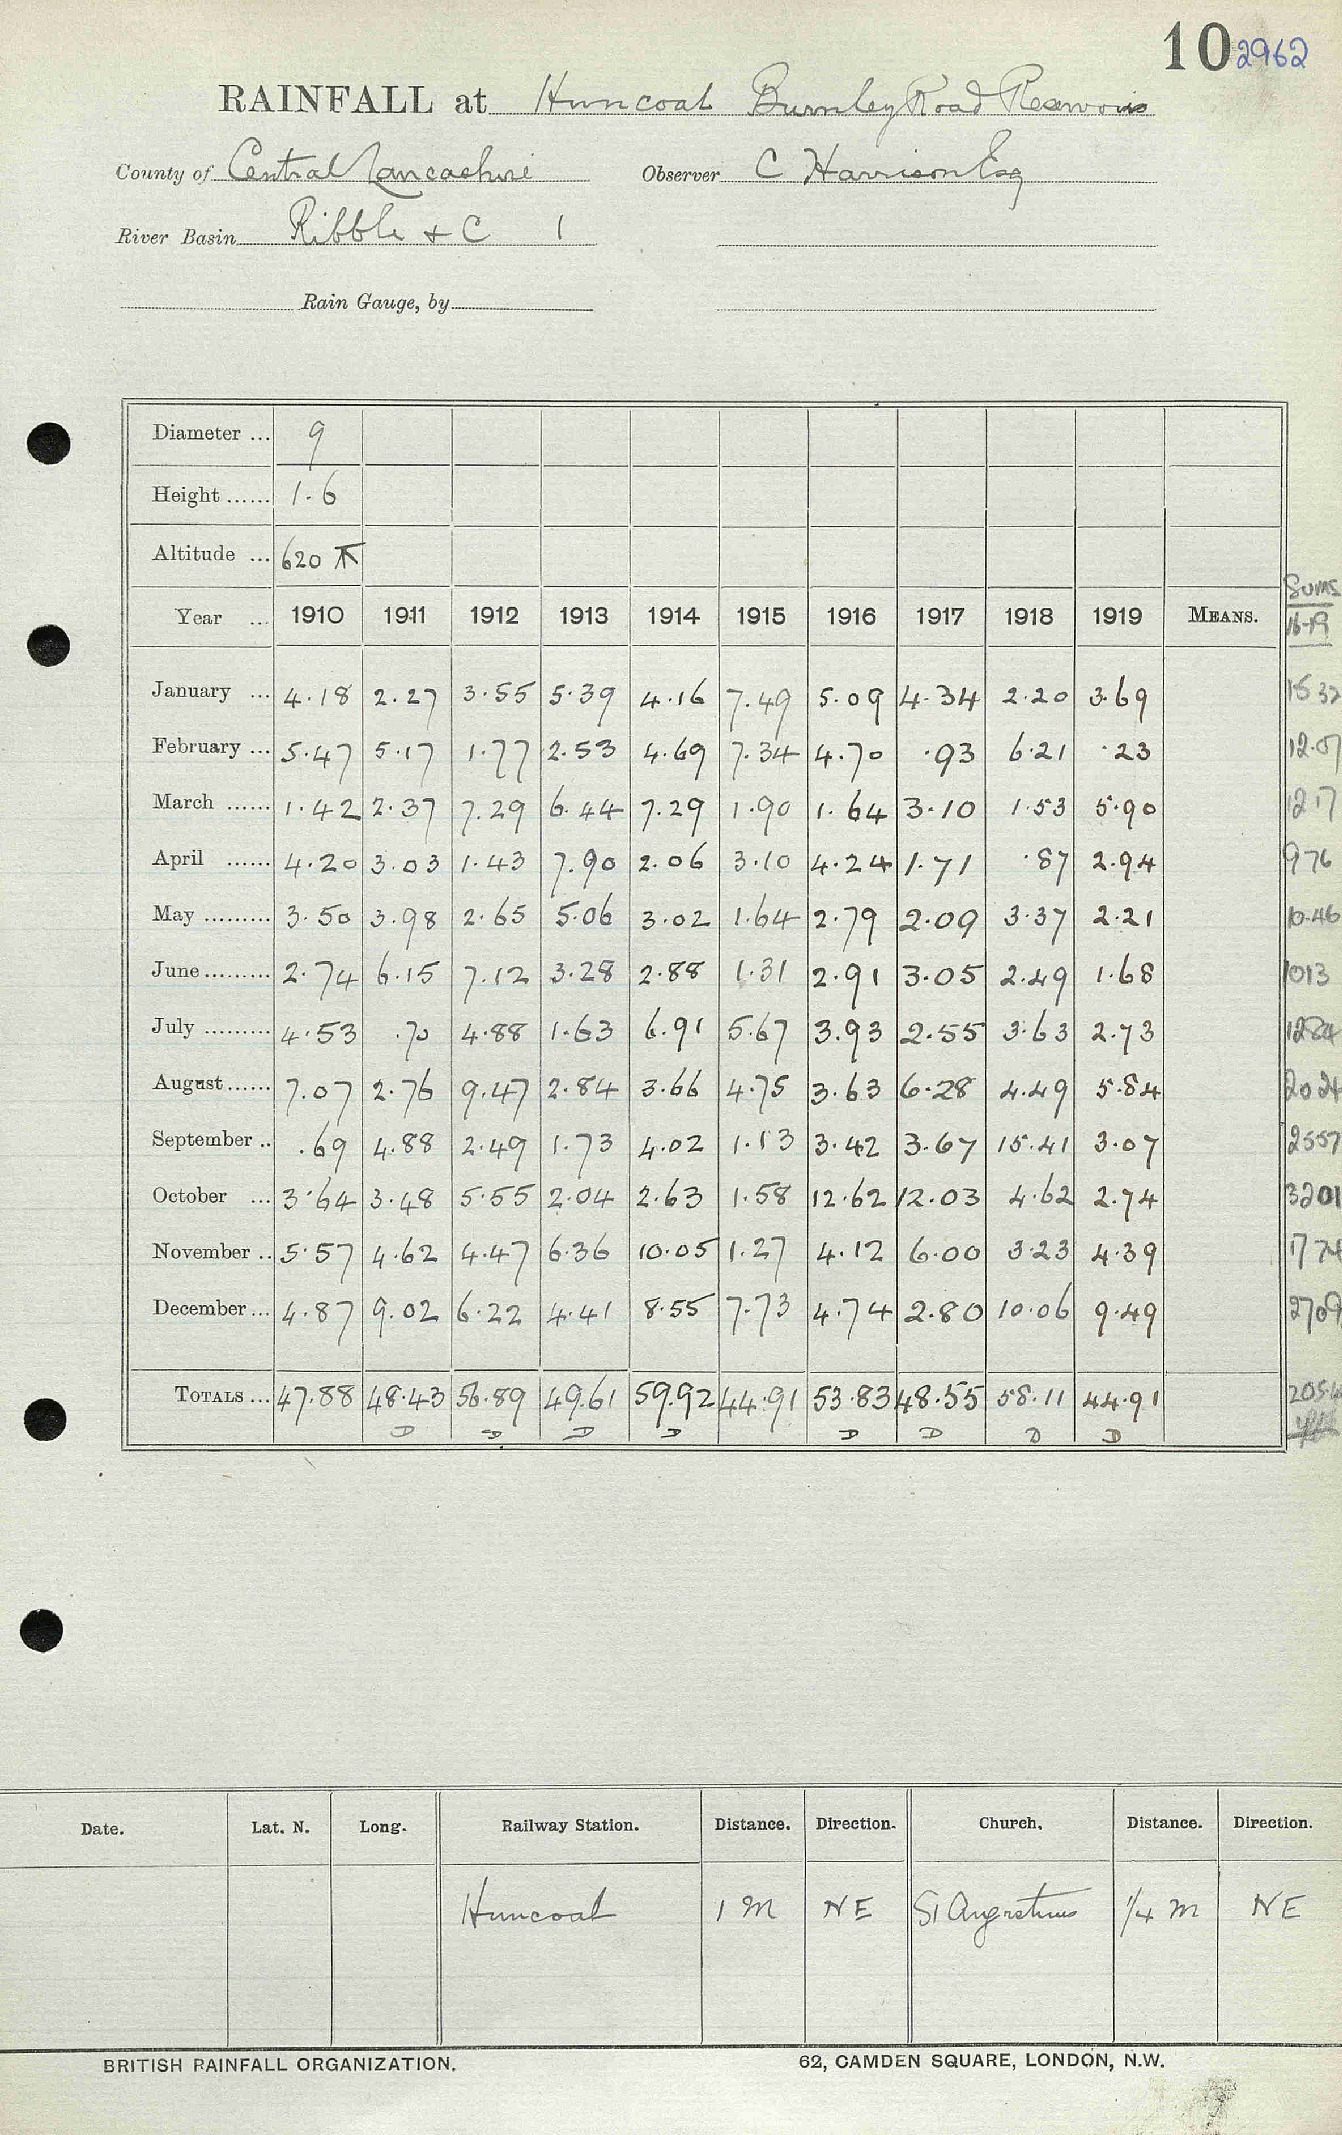 10 2962
RAINFALL at Huncoat Burnley Road Reservoir
County of Central Lancashire Observer C Harrison Esq
River Basin Ribble & C 1
Rain Gauge, by
Diameter ... 9
Height ...... 1.6
Altitude ... 620
Sums
Year ... 1910 1911 1912 1913 1914 1915 1916 1917 1918 1919 MEANS. 16-19
January ... 4.18 2.27 3.55 5.39 4.16 7.49 5.09 4.34 2.20 3.69 1532
February ... 5.47 5.17 1.77 2.53 4.69 7.34 4.70 .93 6.21 .23 12.07
March ...... 1.42 2.37 7.29 6.44 7.29 1.90 1.64 3.10 1.53 5.90 1217
April ...... 4.20 3.03 1.43 7.90 2.06 3.10 4.24 1.71 .87 2.94 976
May ......... 3.50 3.98 2.65 5.06 3.02 1.64 2.79 2.09 3.37 2.21 10.46
June ......... 2.74 6.15 7.12 3.28 2.88 1.31 2.91 3.05 2.49 1.68 1013
July ......... 4.53 .70 4.88 1.63 6.91 5.67 3.93 2.55 3.63 2.73 1284
August ...... 7.07 2.76 9.47 2.84 3.66 4.75 3.63 6.28 4.49 5.84 2024
September .. .69 4.88 2.49 1.73 4.02 1.13 3.42 3.67 15.41 3.07 2557
October ... 3.64 3.48 5.55 2.04 2.63 1.58 12.62 12.03 4.62 2.74 3201
November .. 5.57 4.62 4.47 6.36 10.05 1.27 4.12 6.00 3.23 4.39 1774
December ... 4.87 9.02 6.22 4.41 8.55 7.73 4.74 2.80 10.06 9.49 2709
TOTALS ... 47.88 48.43 56.89 49.61 59.92 44.91 53.83 48.55 58.11 44.91
D D D D D D D D
Date. Lat. N. Long. Railway Station. Distance. Direction. Church. Distance. Direction.
Huncoat 1 M NE St Augustines 1/4 m NE
BRITISH RAINFALL ORGANIZATION. 62, CAMDEN SQUARE, LONDON, N.W.